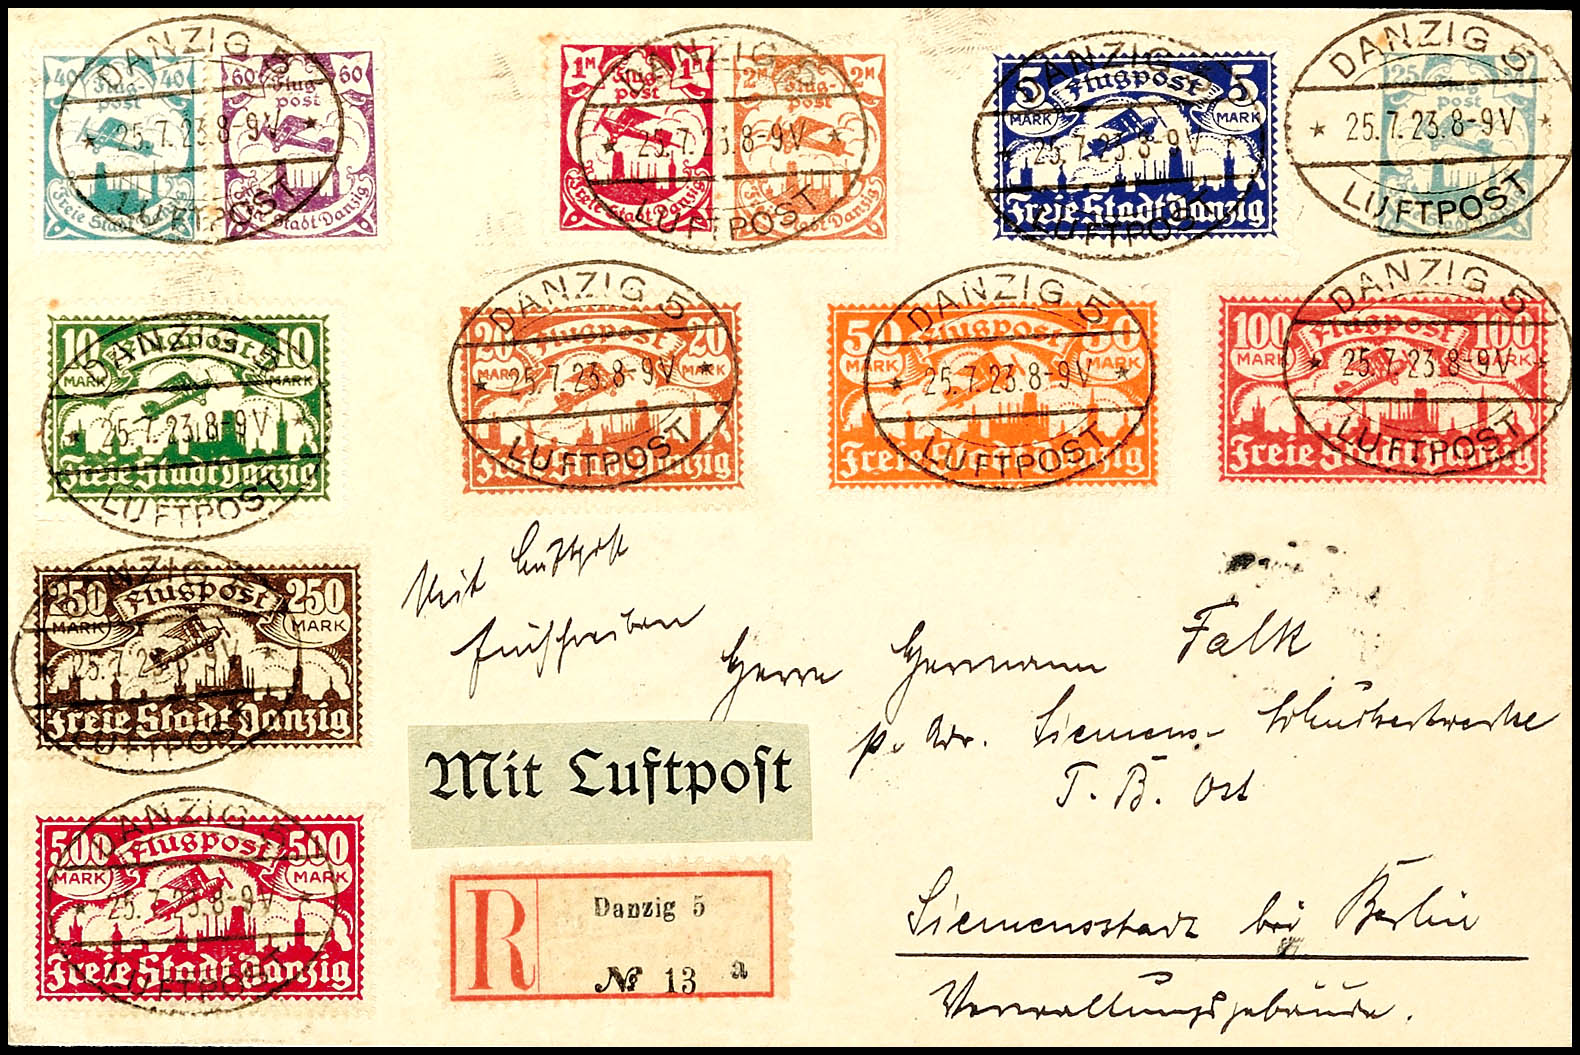 40 Flug-post 40
Freie Stadt Danzig
60 Flug-post 60
Freie Stadt Danzig
DANZIG 5
* 25.7.23.8-9V *
LUFTPOST
1M Flug-post 1M
Freie Stadt Danzig
2M Flug-post 2M
Freie Stadt Danzig
DANZIG 5
* 25.7.23.8-9V *
LUFTPOST
5 MARK Flugpost 5 MARK
Freie Stadt Danzig
DANZIG 5
* 25.7.23.8-9V *
LUFTPOST
25 Flug-post
Freie Stadt Danzig
DANZIG 5
* 25.7.23.8-9V *
LUFTPOST
10 MARK Flugpost 10 MARK
Freie Stadt Danzig
DANZIG 5
* 25.7.23.8-9V *
LUFTPOST
20 MARK Flugpost 20 MARK
Freie Stadt Danzig
DANZIG 5
* 25.7.23.8-9V *
LUFTPOST
50 MARK Flugpost 50 MARK
Freie Stadt Danzig
DANZIG 5
* 25.7.23.8-9V *
LUFTPOST
100 MARK Flugpost 100 MARK
Freie Stadt Danzig
DANZIG 5
* 25.7.23.8-9V *
LUFTPOST
250 MARK Flugpost 250 MARK
Freie Stadt Danzig
DANZIG 5
* 25.7.23.8-9V *
LUFTPOST
500 MARK Flugpost 500 MARK
Freie Stadt Danzig
DANZIG 5
* 25.7.23.8-9V *
LUFTPOST
Mit Luftpost
Einschreiben
Herrn Hermann Falk
p. Adr. Siemens-Schuckertwerke
T. B. Ost
Mit Luftpost
R Danzig 5
№ 13 a
Siemensstadt bei Berlin
Verwaltungsgebäude.